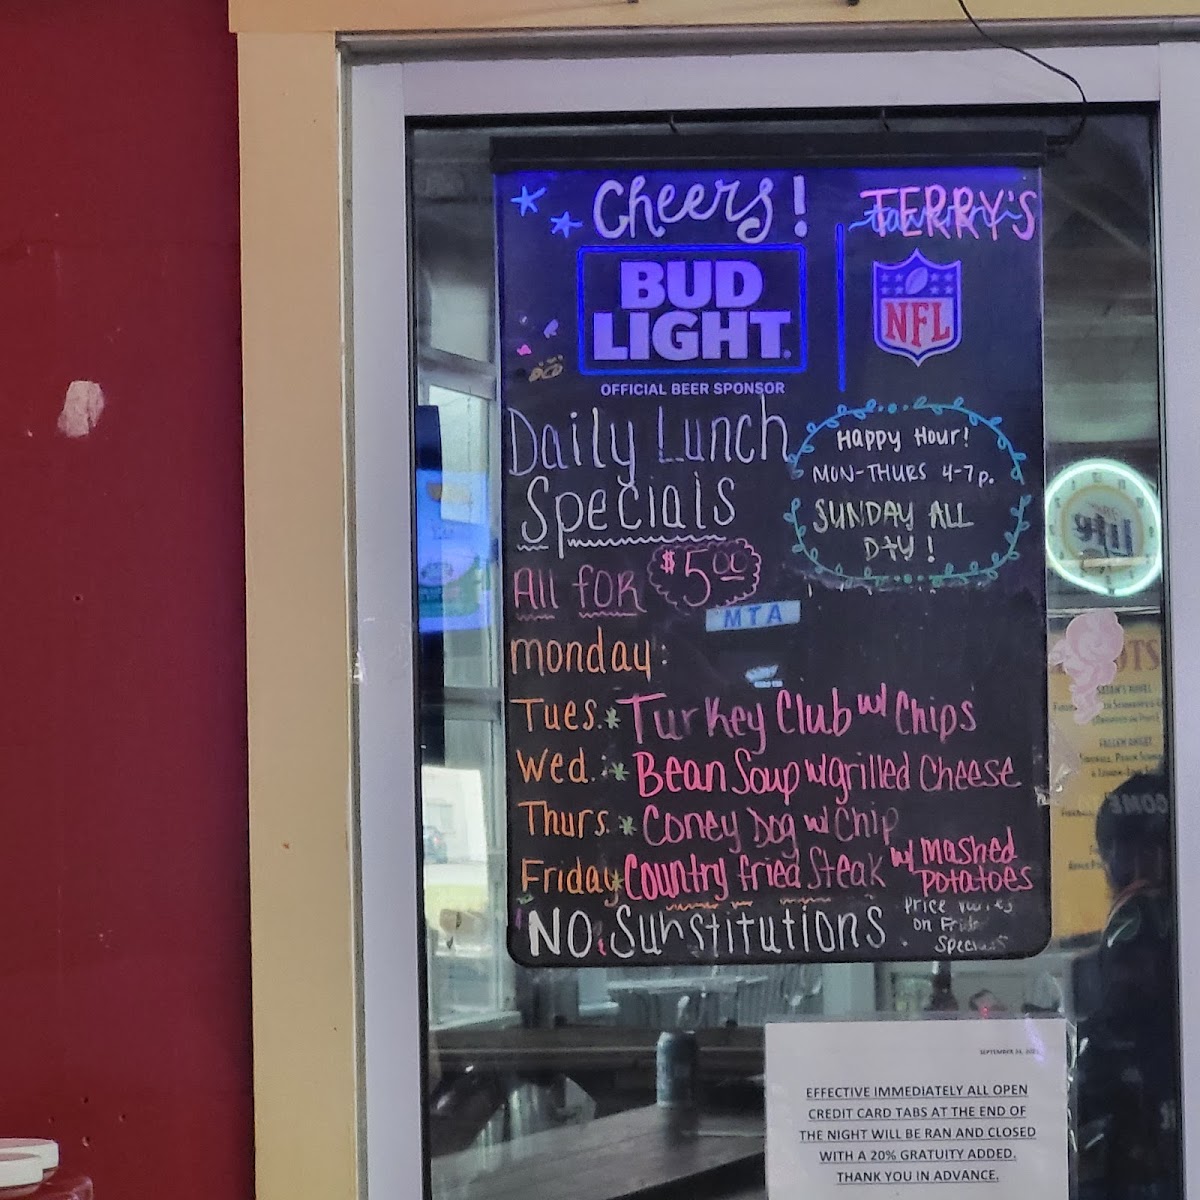 Cheers!
TERRY'S
BUD
LIGHT
NFL
OFFICIAL BEER SPONSOR
Daily Lunch
Specials
All for $5.00
Happy Hour!
MON-THURS 4-7p.
SUNDAY ALL
DAY!
MTA
monday:
Tues.* Turkey Club w/ Chips
Wed.:* Bean Soup w/ grilled Cheese
Thurs.* Coney Dog w/ Chip
Friday* Country fried Steak w/ MASHED
POTATOES
NO Substitutions
Price varies
on Friday
Specials
SEPTEMBER
EFFECTIVE IMMEDIATELY ALL OPEN
CREDIT CARD TABS AT THE END OF
THE NIGHT WILL BE RAN AND CLOSED
WITH A 20% GRATUITY ADDED.
THANK YOU IN ADVANCE.